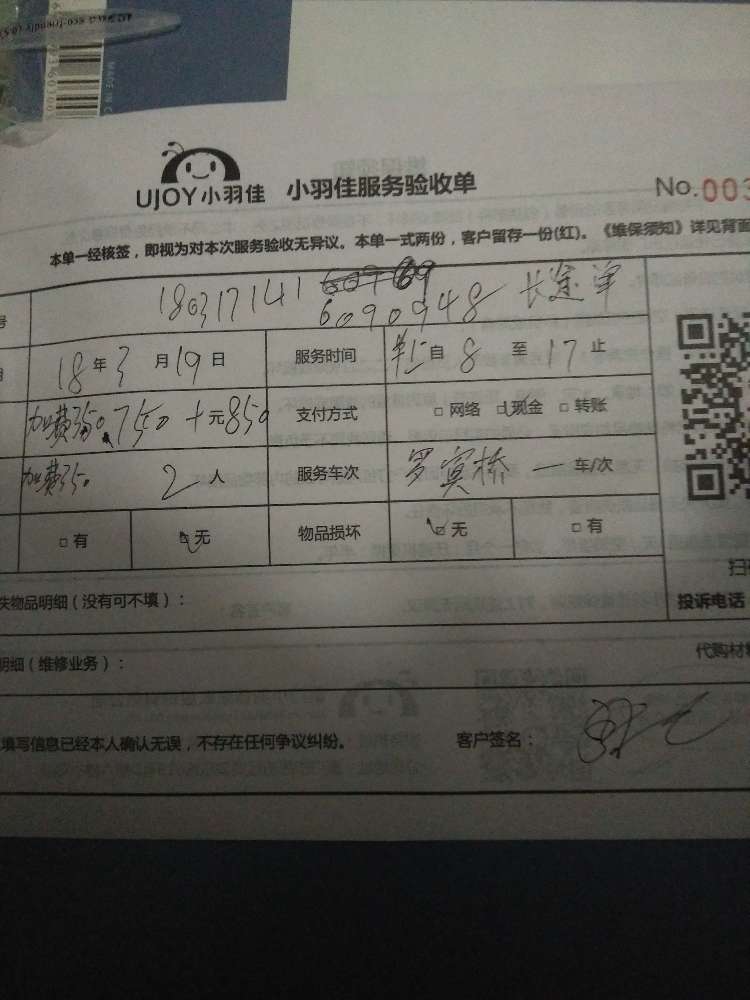 MADE IN C
UJOY小羽佳 小羽佳服务验收单
No.003
本单一经核签，即视为对本次服务验收无异议。本单一式两份，客户留存一份(红)。《维保须知》详见背面
号 180317141 6090948 长途单
18年3月19日 服务时间 自8至17止
加费350. 750+元850 支付方式 □网络 □现金 □转账
加费350. 2人 服务车次 罗宾桥 一车/次
□有 □无 物品损坏 □无 □有
失物品明细（没有可不填）：
投诉电话
明细（维修业务）：
代购材料
填写信息已经本人确认无误，不存在任何争议纠纷。 客户签名：